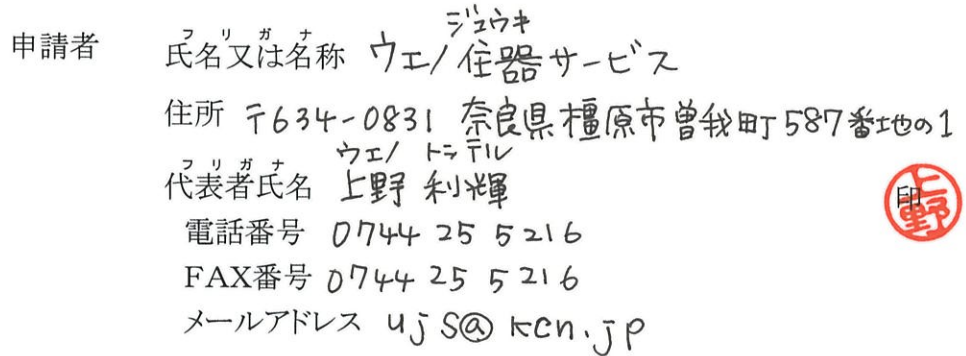 ジュウキ
申請者 氏名又は名称 ウエノ住器サービス
フリガナ
住所 〒634-0831 奈良県橿原市曽我町587番地の1
ウエノ トシテル
フリガナ
代表者氏名 上野 利輝 印 上野
電話番号 0744 25 5216
FAX番号 0744 25 5216
メールアドレス ujs@kcn.jp